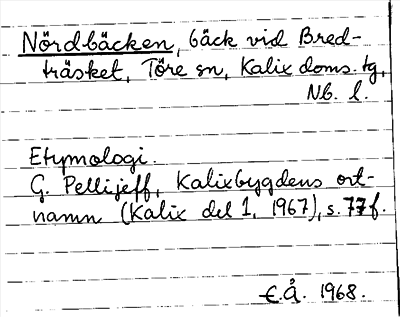 Nördbäcken, bäck vid Bred-
träsket, Töre sn, Kalix doms. tg,
Nb. l.
Etymologi.
G. Pellijeff, Kalixbygdens ort-
namn (Kalix del 1, 1967), s. 77 f.
E.Å. 1968.